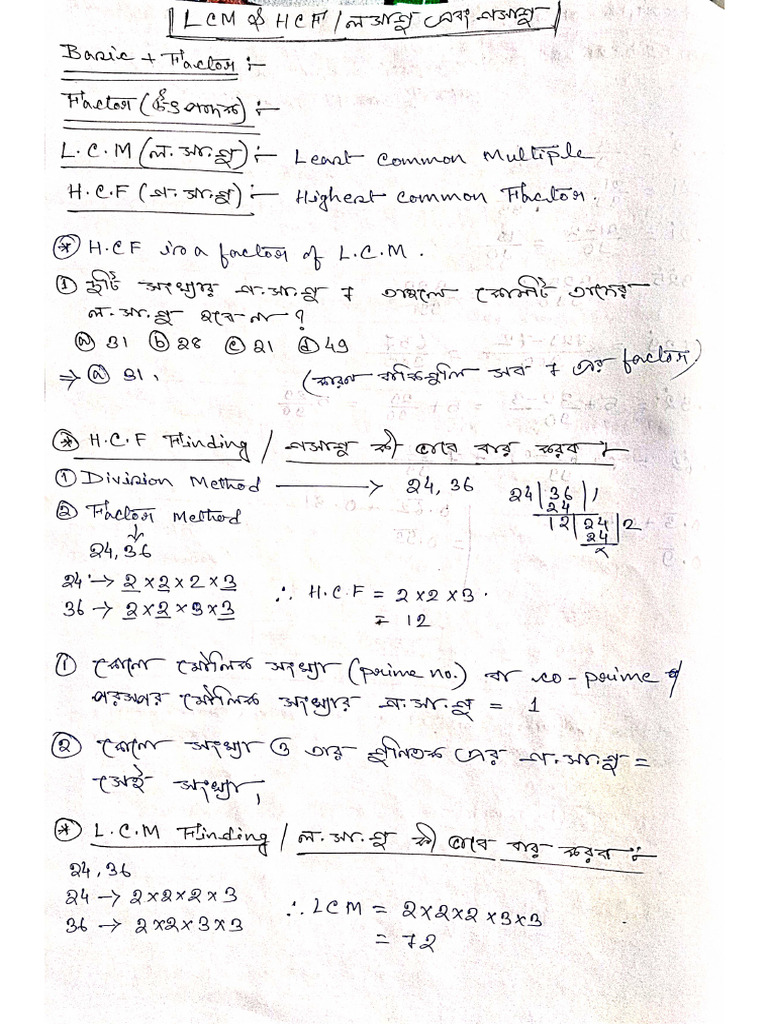 LCM & HCF / ল সা গু এবং গ সা গু
Basic + Factor :-
Factor (উৎপাদক) :-
L.C.M (ল.সা.গু) :- Least Common Multiple
H.C.F (গ.সা.গু) :- Highest Common Factor.
* H.C.F is a factor of L.C.M.
① দুটি সংখ্যার গ.সা.গু 7 তাহলে কোনটি তাদের
ল.সা.গু হবে না ?
ⓐ 31 ⓑ 28 ⓒ 21 ⓓ 49
⇒ ⓐ 31, (কারণ বাকিগুলি সব 7 এর factor)
* H.C.F Finding / গসাগু কী ভাবে বার করব :-
① Division Method → 24, 36 24|36|1
24
12|24|2
24
② Factor Method
↓
24, 36
24 → 2×2×2×3 ∴ H.C.F = 2×2×3
36 → 2×2×3×3 = 12
① কোনো মৌলিক সংখ্যা (prime no.) বা co-prime
পরস্পর মৌলিক সংখ্যার গ.সা.গু = 1
② কোনো সংখ্যা ও তার গুনিতক এর গ.সা.গু =
সেই সংখ্যা,
* L.C.M Finding / ল.সা.গু কী ভাবে বার করব :-
24, 36
24 → 2×2×2×3 ∴ LCM = 2×2×2×3×3
36 → 2×2×3×3 = 72